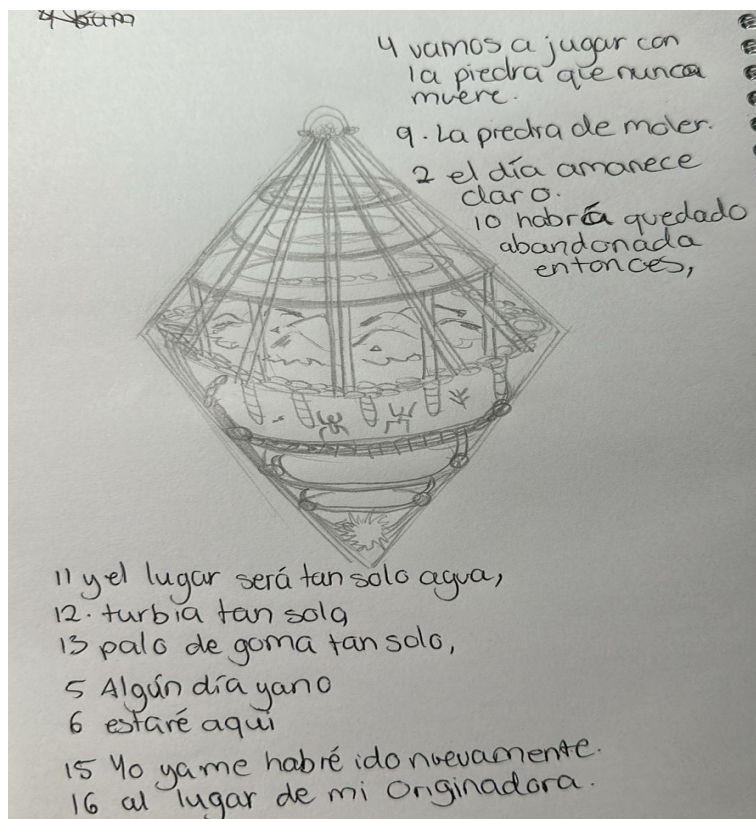 4 vamos a jugar con
la piedra que nunca
muere.
9. La piedra de moler.
2 el día amanece
claro.
10 habrá quedado
abandonada
entonces,
11 y el lugar será tan solo agua,
12. turbia tan sola
13 palo de goma tan solo,
5 Algún día ya no
6 estaré aquí
15 Yo ya me habré ido nuevamente.
16 al lugar de mi Originadora.